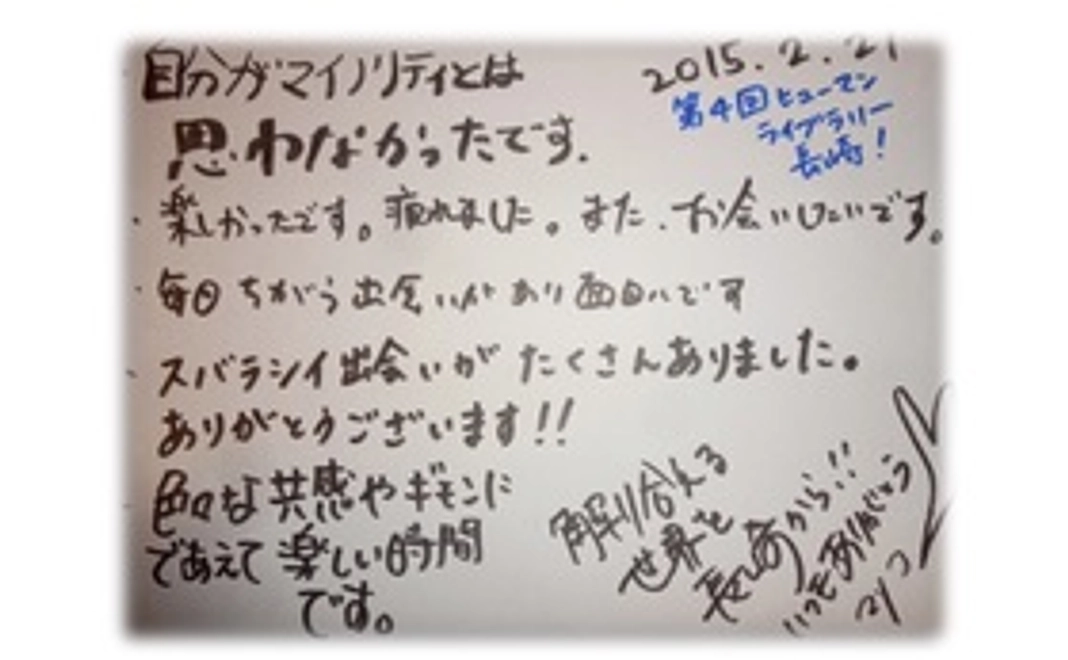 自分がマイノリティとは
思わなかったです。
2015.2.21
第4回ヒューマン
ライブラリー
長崎!
・楽しかったです。疲れました。また、お会いしたいです。
・毎日ちがう出会いがあり面白いです
・スバラシイ出会いがたくさんありました。
ありがとうございます!!
・色々な共感やギモンに
であえて楽しい時間
です。
解り合える
世界を
長崎から!!
いつもありがとう